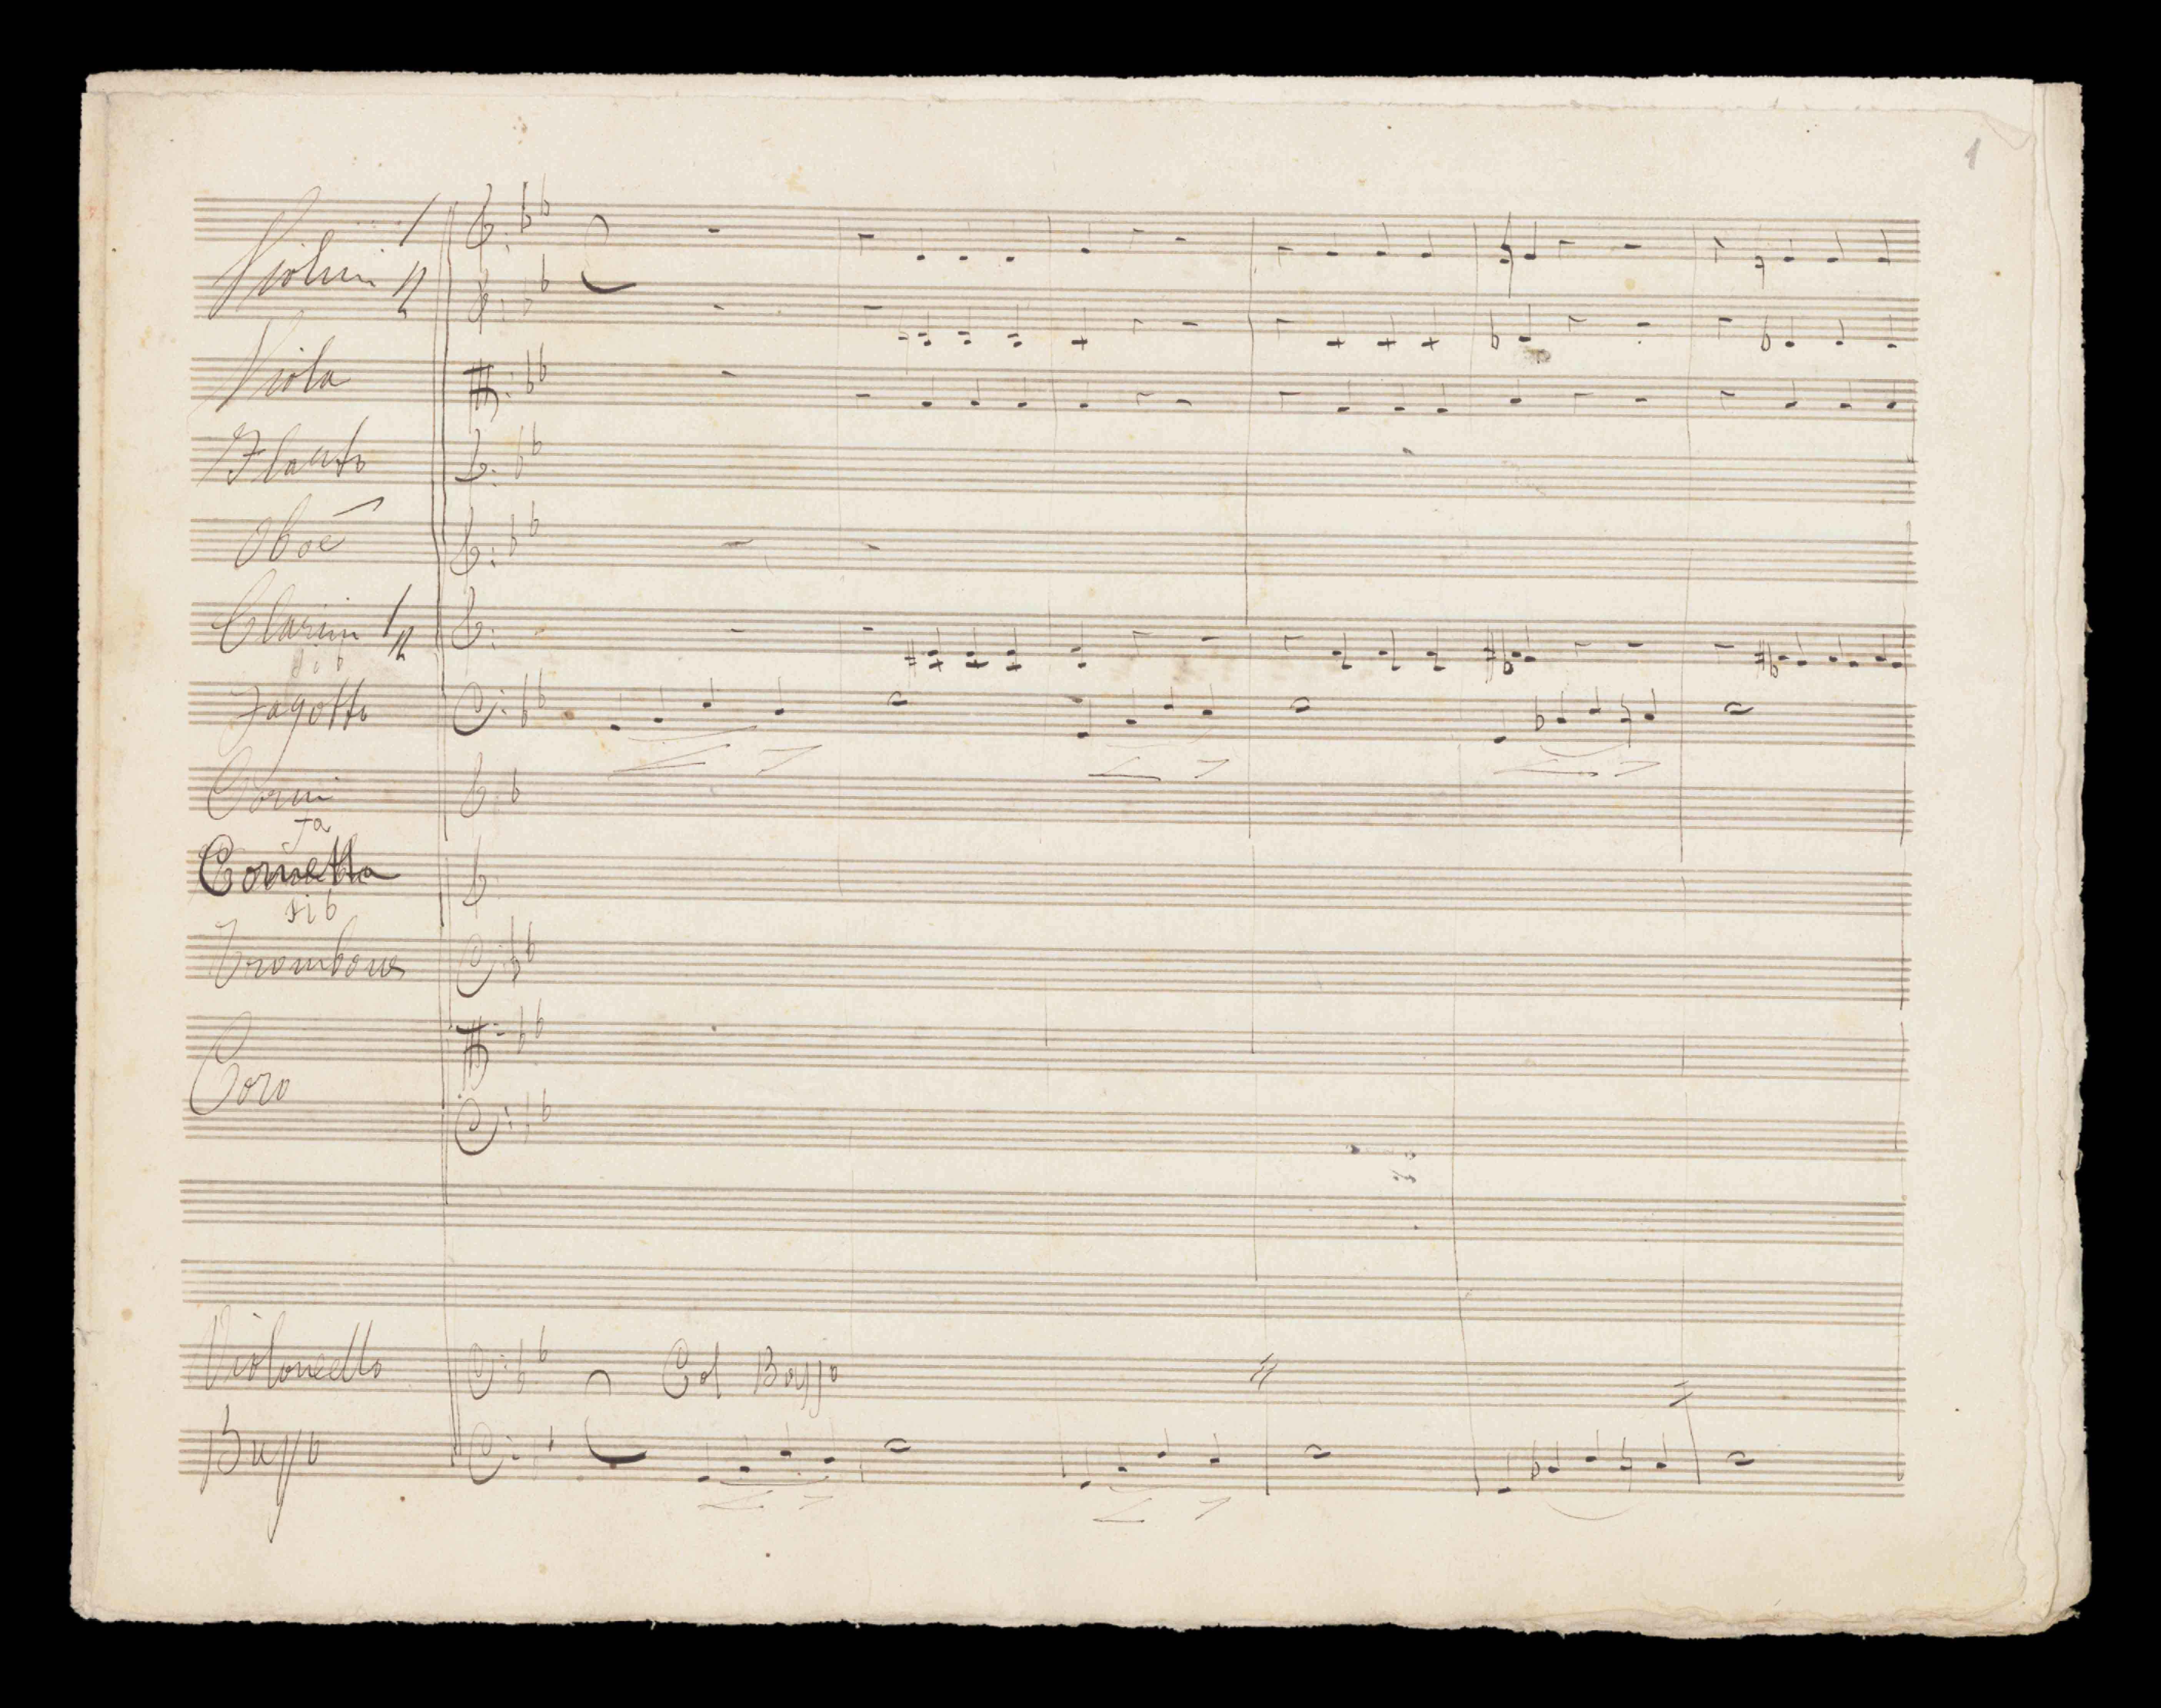 1
Violini 1
2
Viola
Flauto
Oboe
Clarini 1 2
si b
Fagotto
Corni
fa
Cornetta
si b
Trombone
Coro
Violoncello Col Basso
Basso